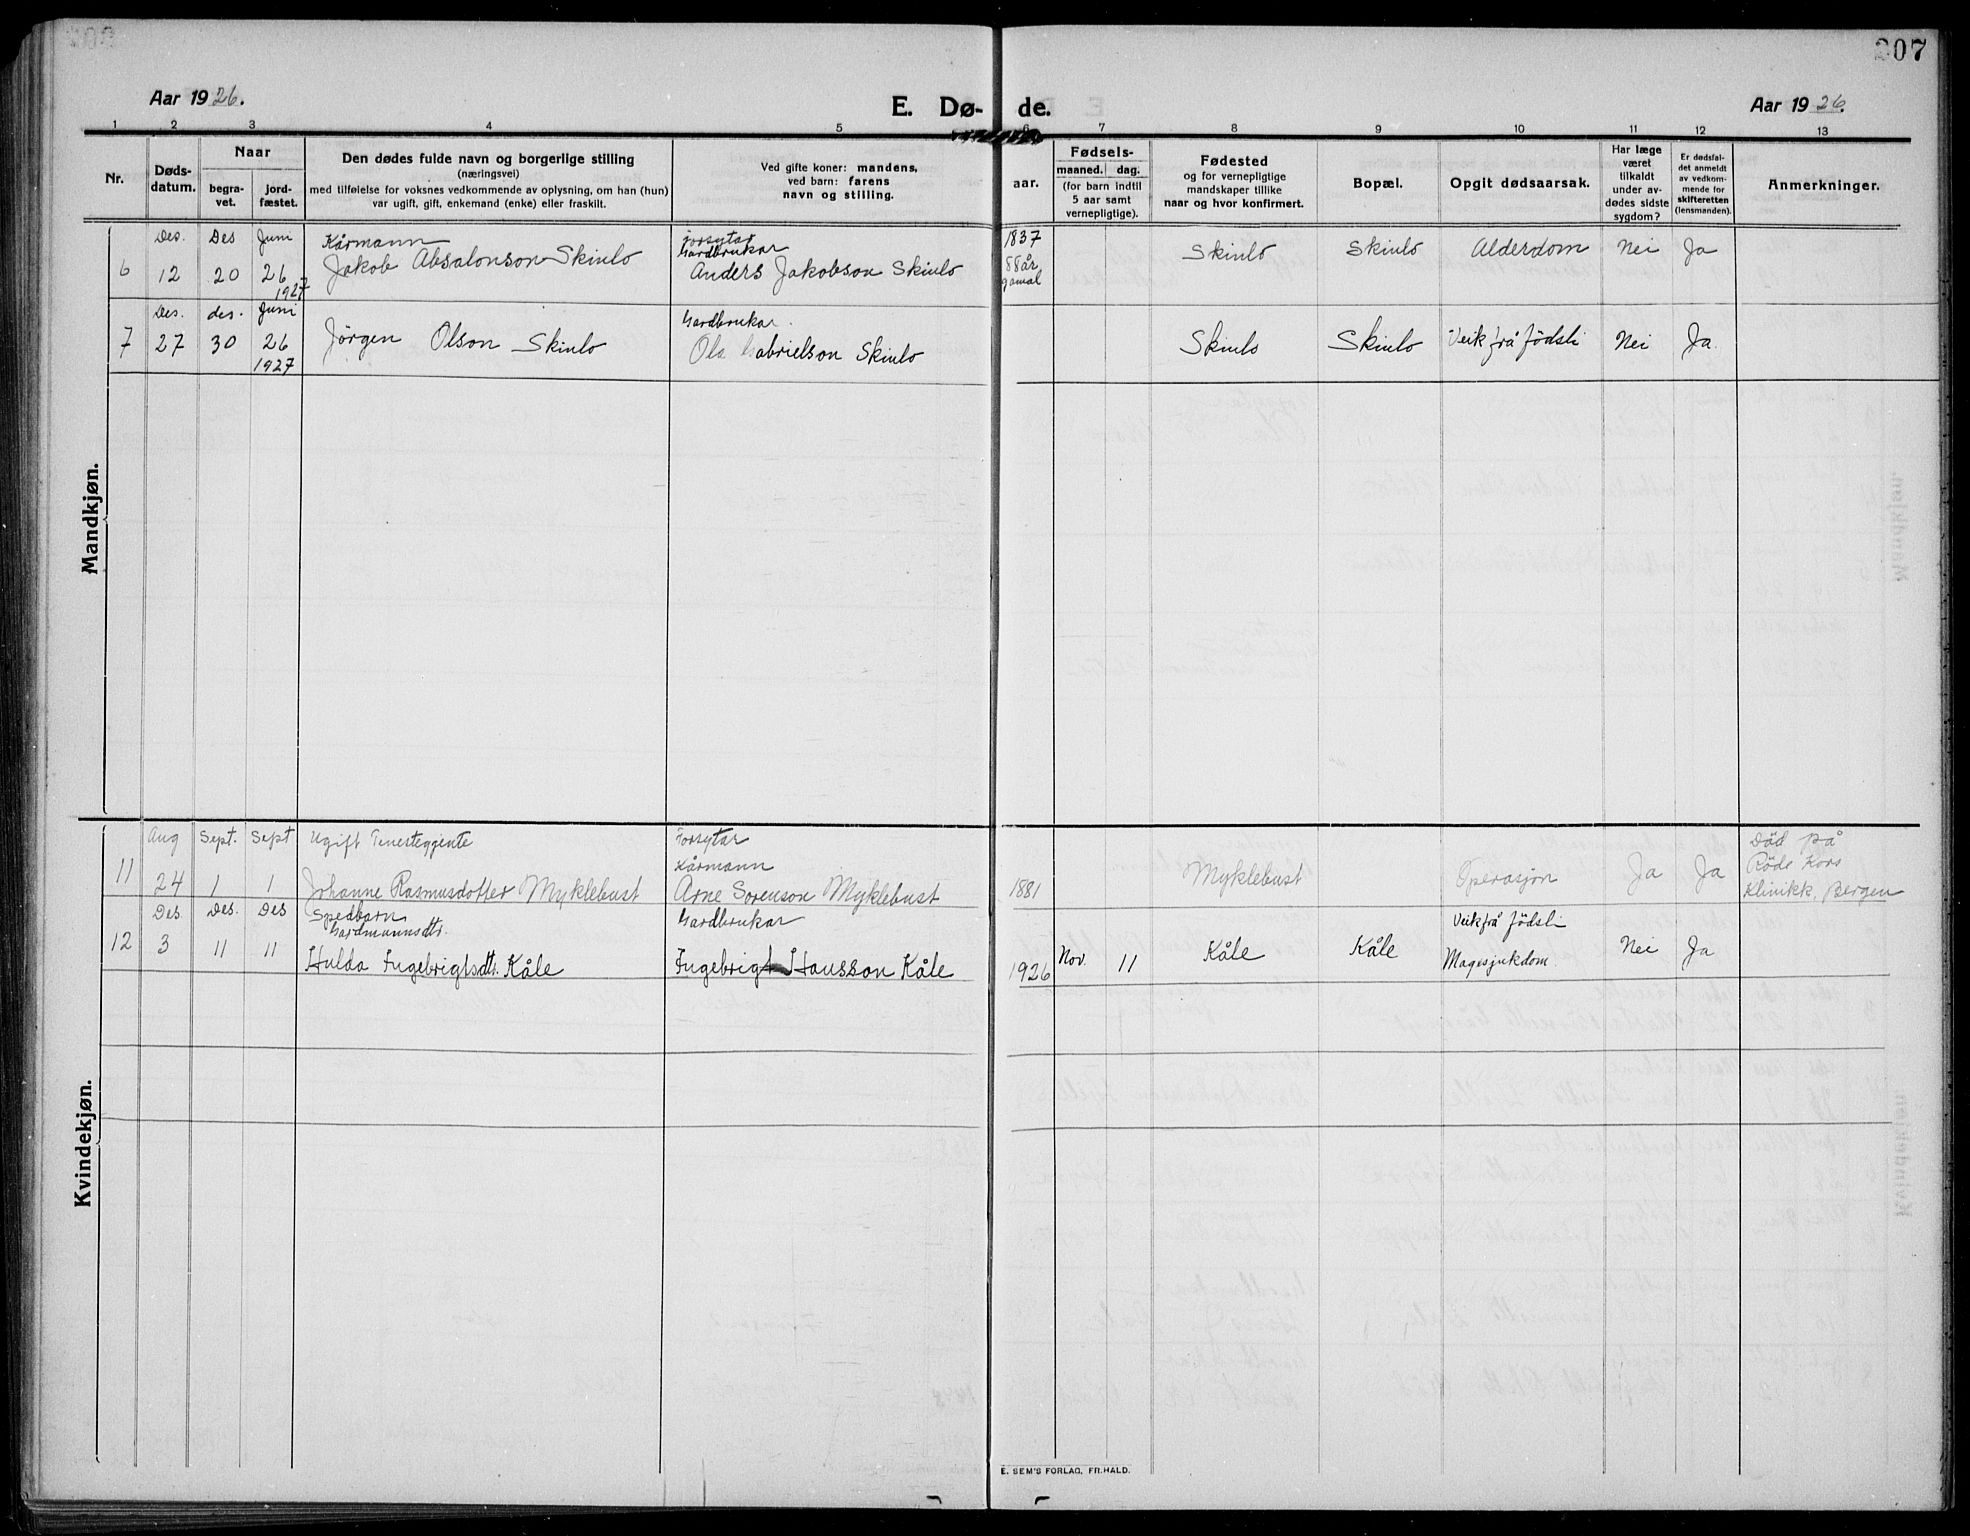 207
Aar 1926.
E. Dø-
de.
Aar 1926.
1 2 3 4 5 6 7 8 9 10 11 12 13
Nr.
Døds-
datum.
Naar
begra-
vet.
jord-
fæstet.
Den dødes fulde navn og borgerlige stilling
(næringsvei)
med tilføielse for voksnes vedkommende av oplysning, om han (hun)
var ugift, gift, enkemand (enke) eller fraskilt.
Ved gifte koner: mandens,
ved barn: farens
navn og stilling.
aar.
Fødsels-
maaned. dag.
(for barn indtil
5 aar samt
vernepligtige).
Fødested
og for vernepligtige
mandskaper tillike
naar og hvor konfirmert.
Bopæl.
Opgit dødsaarsak.
Har læge
været
tilkaldt
under av-
dødes sidste
sygdom?
Er dødsfal-
det anmeldt
av vedkom-
mende for
skifteretten
(lensmanden).
Anmerkninger.
Mandkjøn.
Des. Des Juni Kårmann forsytar 1837
Gardbrukar
6 12 20 26 Jakob Absalonson Skinlo Anders Jakobson Skinlo 88 år Skinlo Skinlo Alderdom Nei Ja
1927 gamal
Des. des. Juni Gardbrukar.
7 27 30 26 Jørgen Olson Skinlo Ola Gabrielson Skinlo Skinlo Skinlo Veik frå födsli Nei Ja.
1927
Kvindekjøn.
Aug Sept. Sept Ugift Tenestegjente Forsytar Död på
Kårmann Røde Kors
11 24 1 1 Johanne Rasmusdotter Myklebust Arne Sorenson Myklebust 1881 Myklebust Operasjon Ja Ja Klinikk, Bergen
Des. Des. Des Spedbarn Gardbrukar Veik frå födsli
Gardmannsdtr.
12 3 11 11 Hulda Ingebrigtsdtr. Kåle Ingebrigt Hansson Kåle 1926 Nov. 11 Kåle Kåle Magesjukdom. Nei Ja
E. SEM'S FORLAG, FR.HALD.